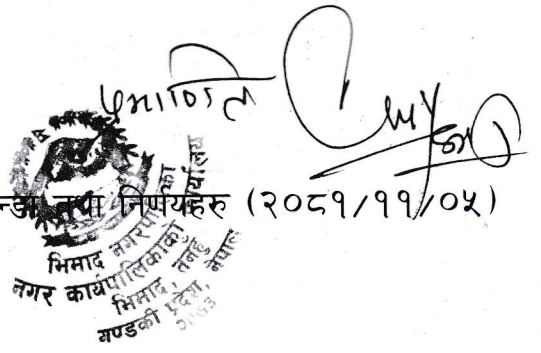 प्रमाणित
तथा निर्णयहरू (२०८१/११/०५)
भिमाद नगरपालिका
नगर कार्यपालिकाको कार्यालय
भिमाद, तनहुँ
गण्डकी प्रदेश, नेपाल